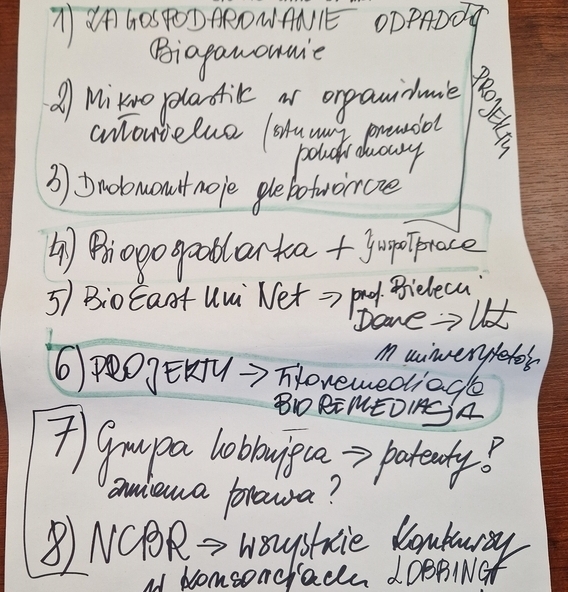 1) ZAGOSPODAROWANIE ODPADÓW
Biogazownie
2) Mikroplastik w organizmie
człowieka (sztuczny przewód
pokarmowy
3) Drobnoustroje glebotwórcze
PROJEKTY
4) Biogospodarka + współpraca
5) BioEast Uni Net → prof. Bielecki
Dane →
11 uniwersytetów
6) PROJEKTY → Fitoremediacja
BIOREMEDIACJA
7) Grupa lobbująca → patenty?
zmiana prawa?
8) NCBR → wszystkie konkursy
w konsorcjach LOBBING